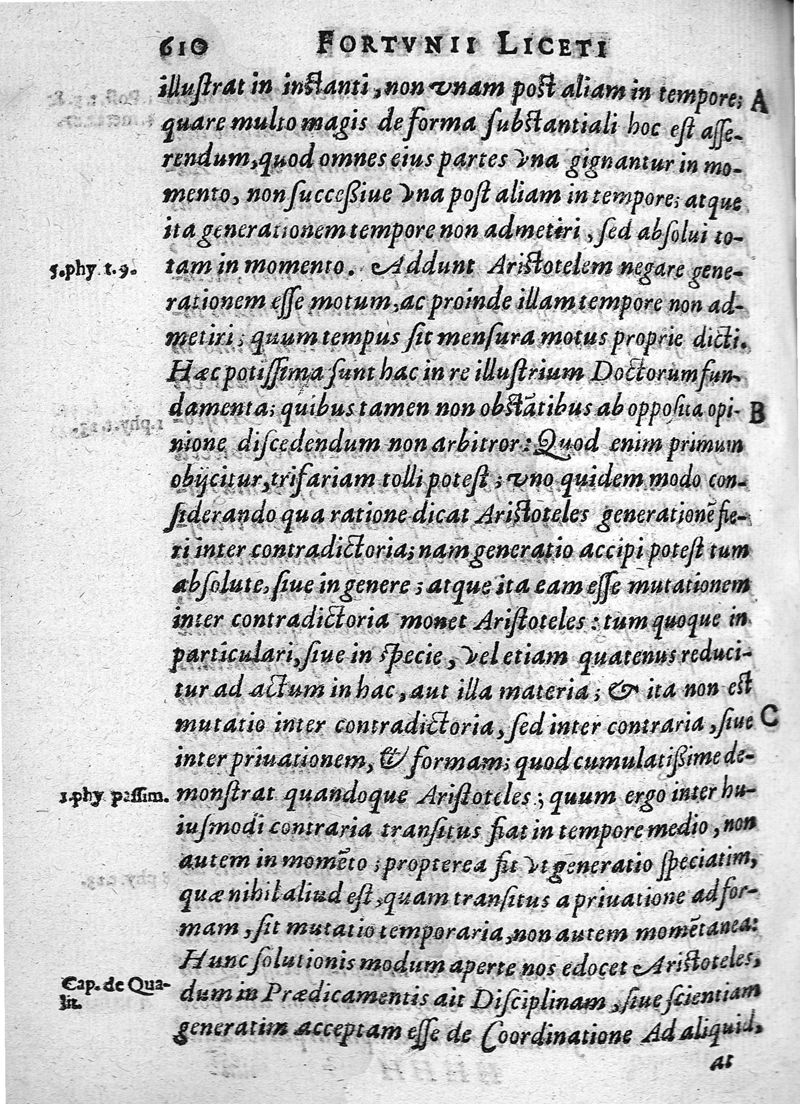 610 FORTVNII LICETI
illuſtrat in inſtanti, non vnam poſt aliam in tempore; A
quare multo magis de forma ſubſtantiali hoc eſt aſſe-
rendum, quod omnes eius partes vna gignantur in mo-
mento, non ſucceßiue vna poſt aliam in tempore; atque
ita generationem tempore non admetiri, ſed abſolui to-
5.phy. t. 9. tam in momento. Addunt Ariſtotelem negare gene-
rationem eſſe motum, ac proinde illam tempore non ad-
metiri; quum tempus ſit menſura motus proprie dicti.
Hæc potiſſima ſunt hac in re illuſtrium Doctorum fun-
damenta; quibus tamen non obſtātibus ab oppoſita opi- B
nione diſcedendum non arbitror: Quod enim primum
obijcitur, trifariam tolli poteſt; vno quidem modo con-
ſiderando qua ratione dicat Ariſtoteles generationē fie-
ri inter contradictoria; nam generatio accipi poteſt tum
abſolute, ſiue in genere; atque ita eam eſſe mutationem
inter contradictoria monet Ariſtoteles: tum quoque in
particulari, ſiue in ſpecie, vel etiam quatenus reduci-
tur ad actum in hac, aut illa materia; & ita non eſt
mutatio inter contradictoria, ſed inter contraria, ſiue C
inter priuationem, & formam; quod cumulatißime de-
1.phy paſſim. monſtrat quandoque Ariſtoteles; quum ergo inter hu-
iuſmodi contraria tranſitus fiat in tempore medio, non
autem in momēto; propterea fit vt generatio ſpeciatim,
quæ nihil aliud eſt, quam tranſitus a priuatione ad for-
mam, ſit mutatio temporaria, non autem momētanea:
Hunc ſolutionis modum aperte nos edocet Ariſtoteles,
Cap. de Qua-
lit. dum in Prædicamentis ait Diſciplinam, ſiue ſcientiam
generatim acceptam eſſe de Coordinatione Ad aliquid,
at